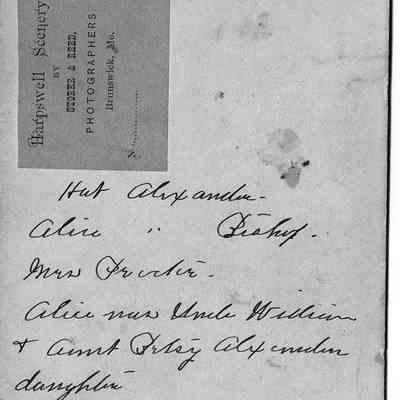 Harpswell Scenery
BY
STOBER & REED,
PHOTOGRAPHERS
Brunswick, Me.
N.
Hat Alexander.
Alice " Bishop.
Mrs Proctor.
Alice was Uncle William
& Aunt Betsy Alexander
daughter